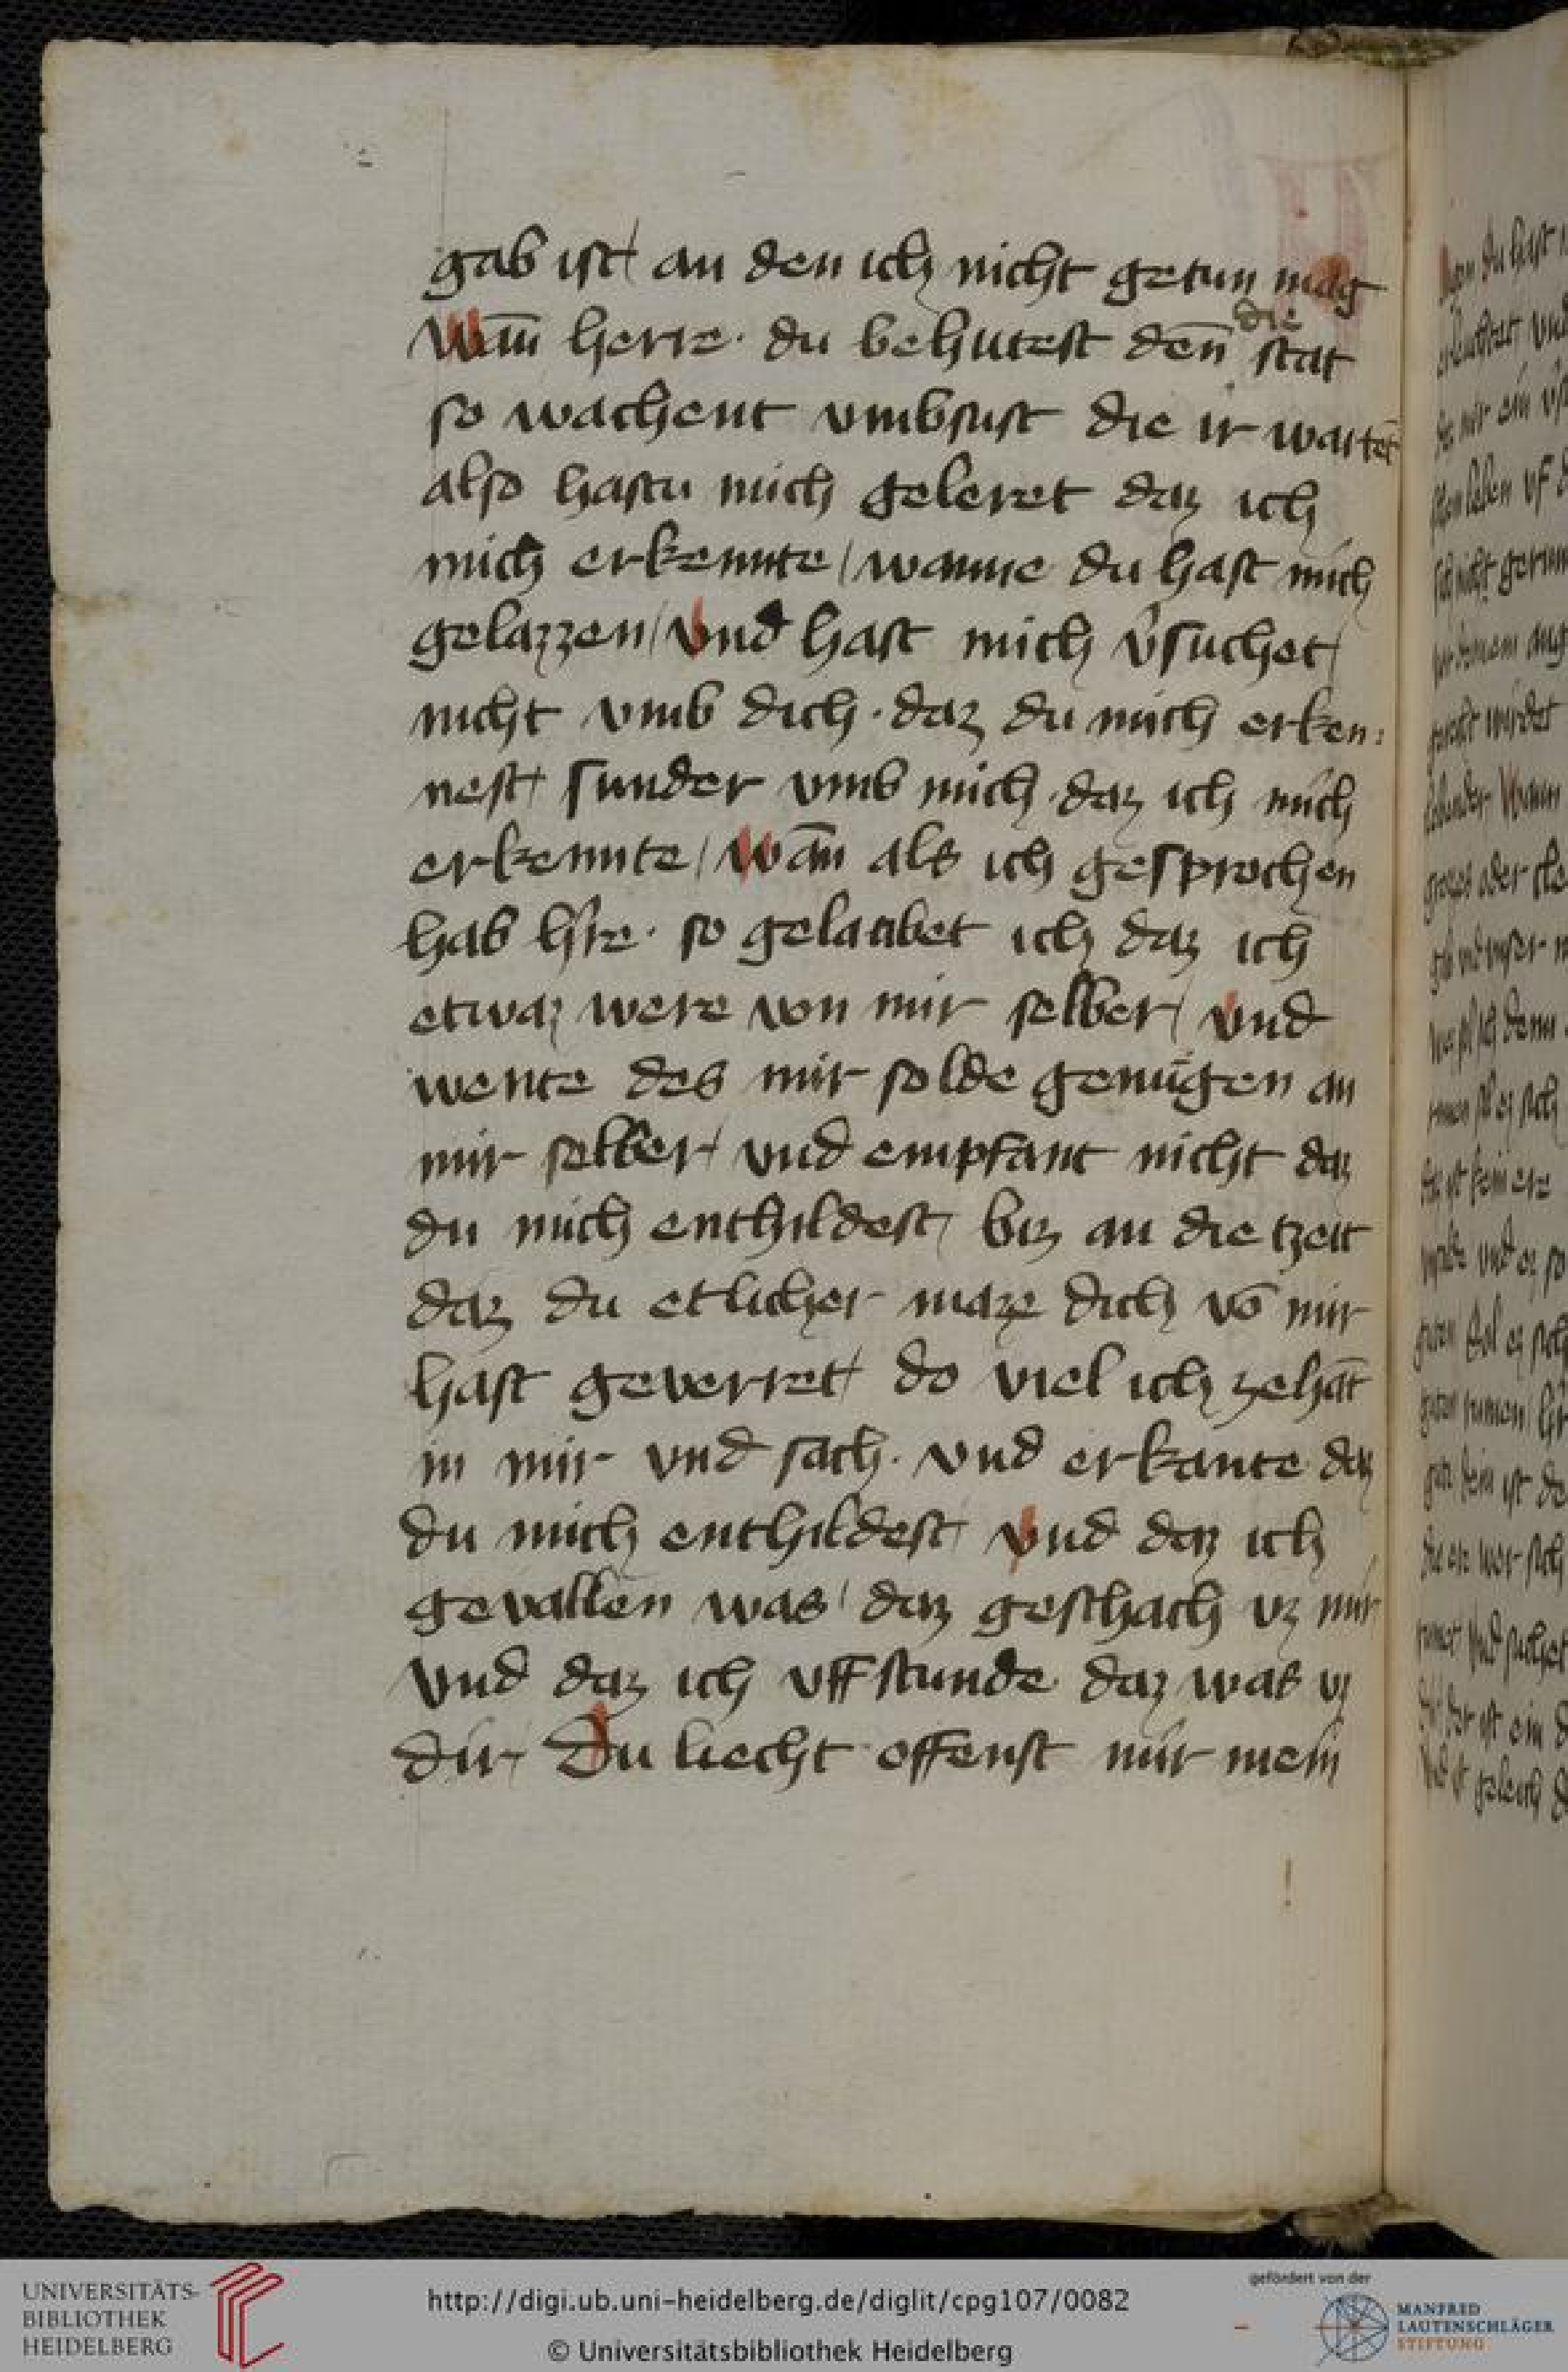 gab ist / an den ich nicht getun mag
Wan̄ herre · du behutest den̄ die stat
so wachent vmbsust die ir wartēt
also hastu mich geleret daz ich
mich erkennte / wanne du hast mich
gelazzen / Vnd hast mich v̓suchet /
nicht vmb dich · daz du mich erken:
nest / sunder vmb mich · daz ich mich
erkennte / Wan̄ als ich gesprochen
hab h̓re · so gelaubet ich daz ich
etwaz were von mir selber / Vnd
wente des mir solde genůgen an
mir selber / vnd empfant nicht daz
du mich enthildest / biz an die tzeit
daz du etlicher maze dich vō mir
hast geverret / do viel ich zehāt
in mir vnd sach · vnd erkante daz
du mich enthildest / Vnd daz ich
gevallen was / daz geschach vz mir
Vnd daz ich vff stunde daz was vz
dir / Du liecht offenst mir mein
UNIVERSITÄTS-
BIBLIOTHEK
HEIDELBERG
http://digi.ub.uni-heidelberg.de/diglit/cpg107/0082
© Universitätsbibliothek Heidelberg
gefördert von der
MANFRED
LAUTENSCHLÄGER
STIFTUNG